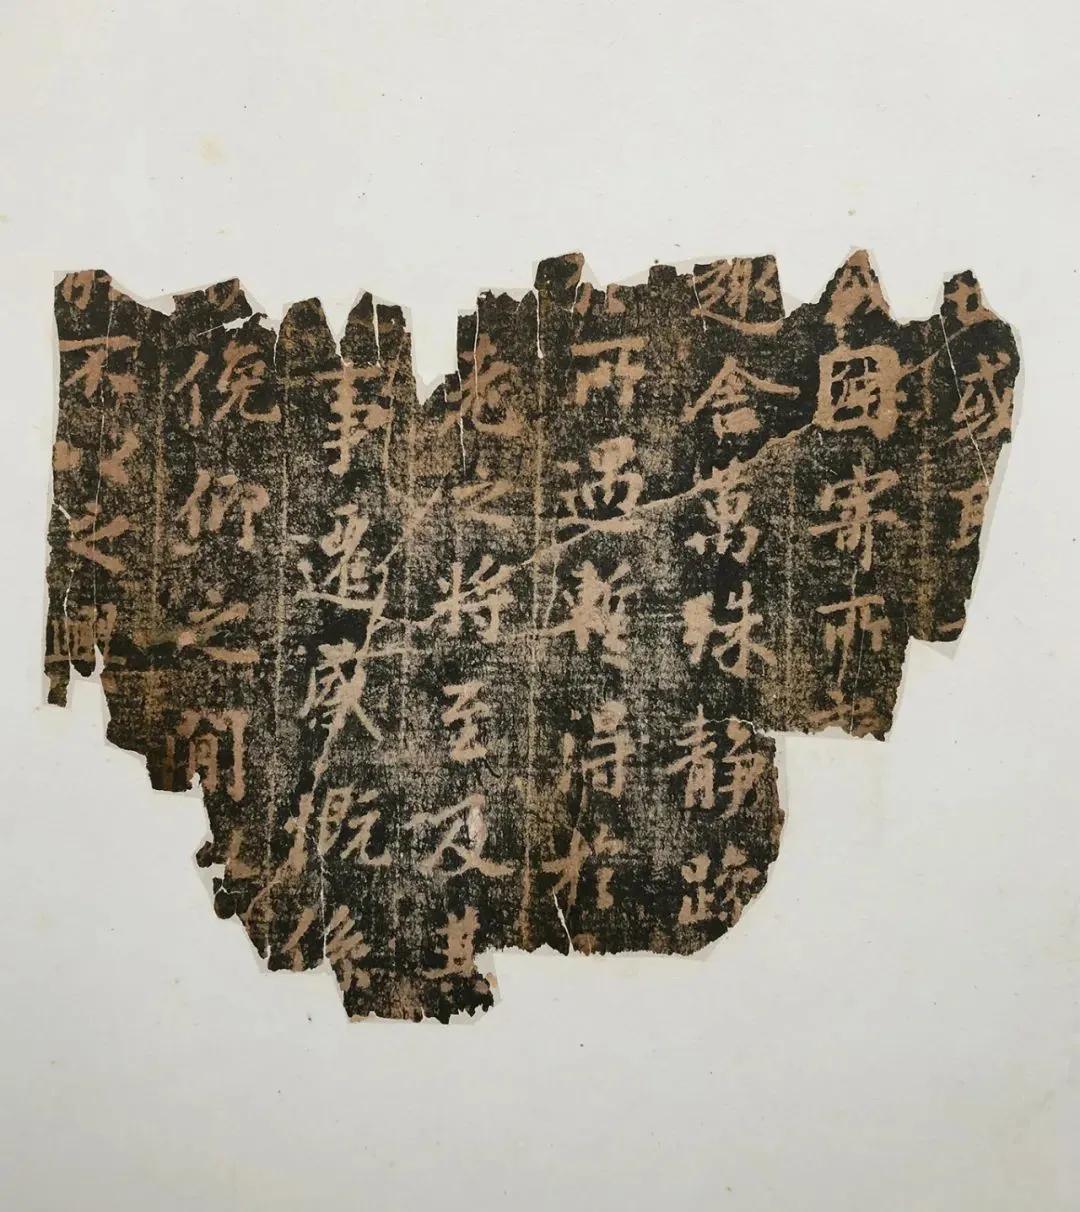 或取
因寄所
趣舍萬殊靜躁
所遇暫得於
老之將至及其
事遷感慨係
俛仰之間
不以之興